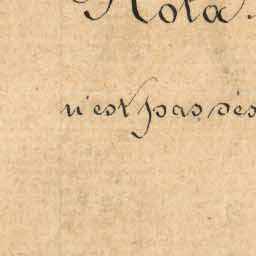 Nota.
n'est pas dés